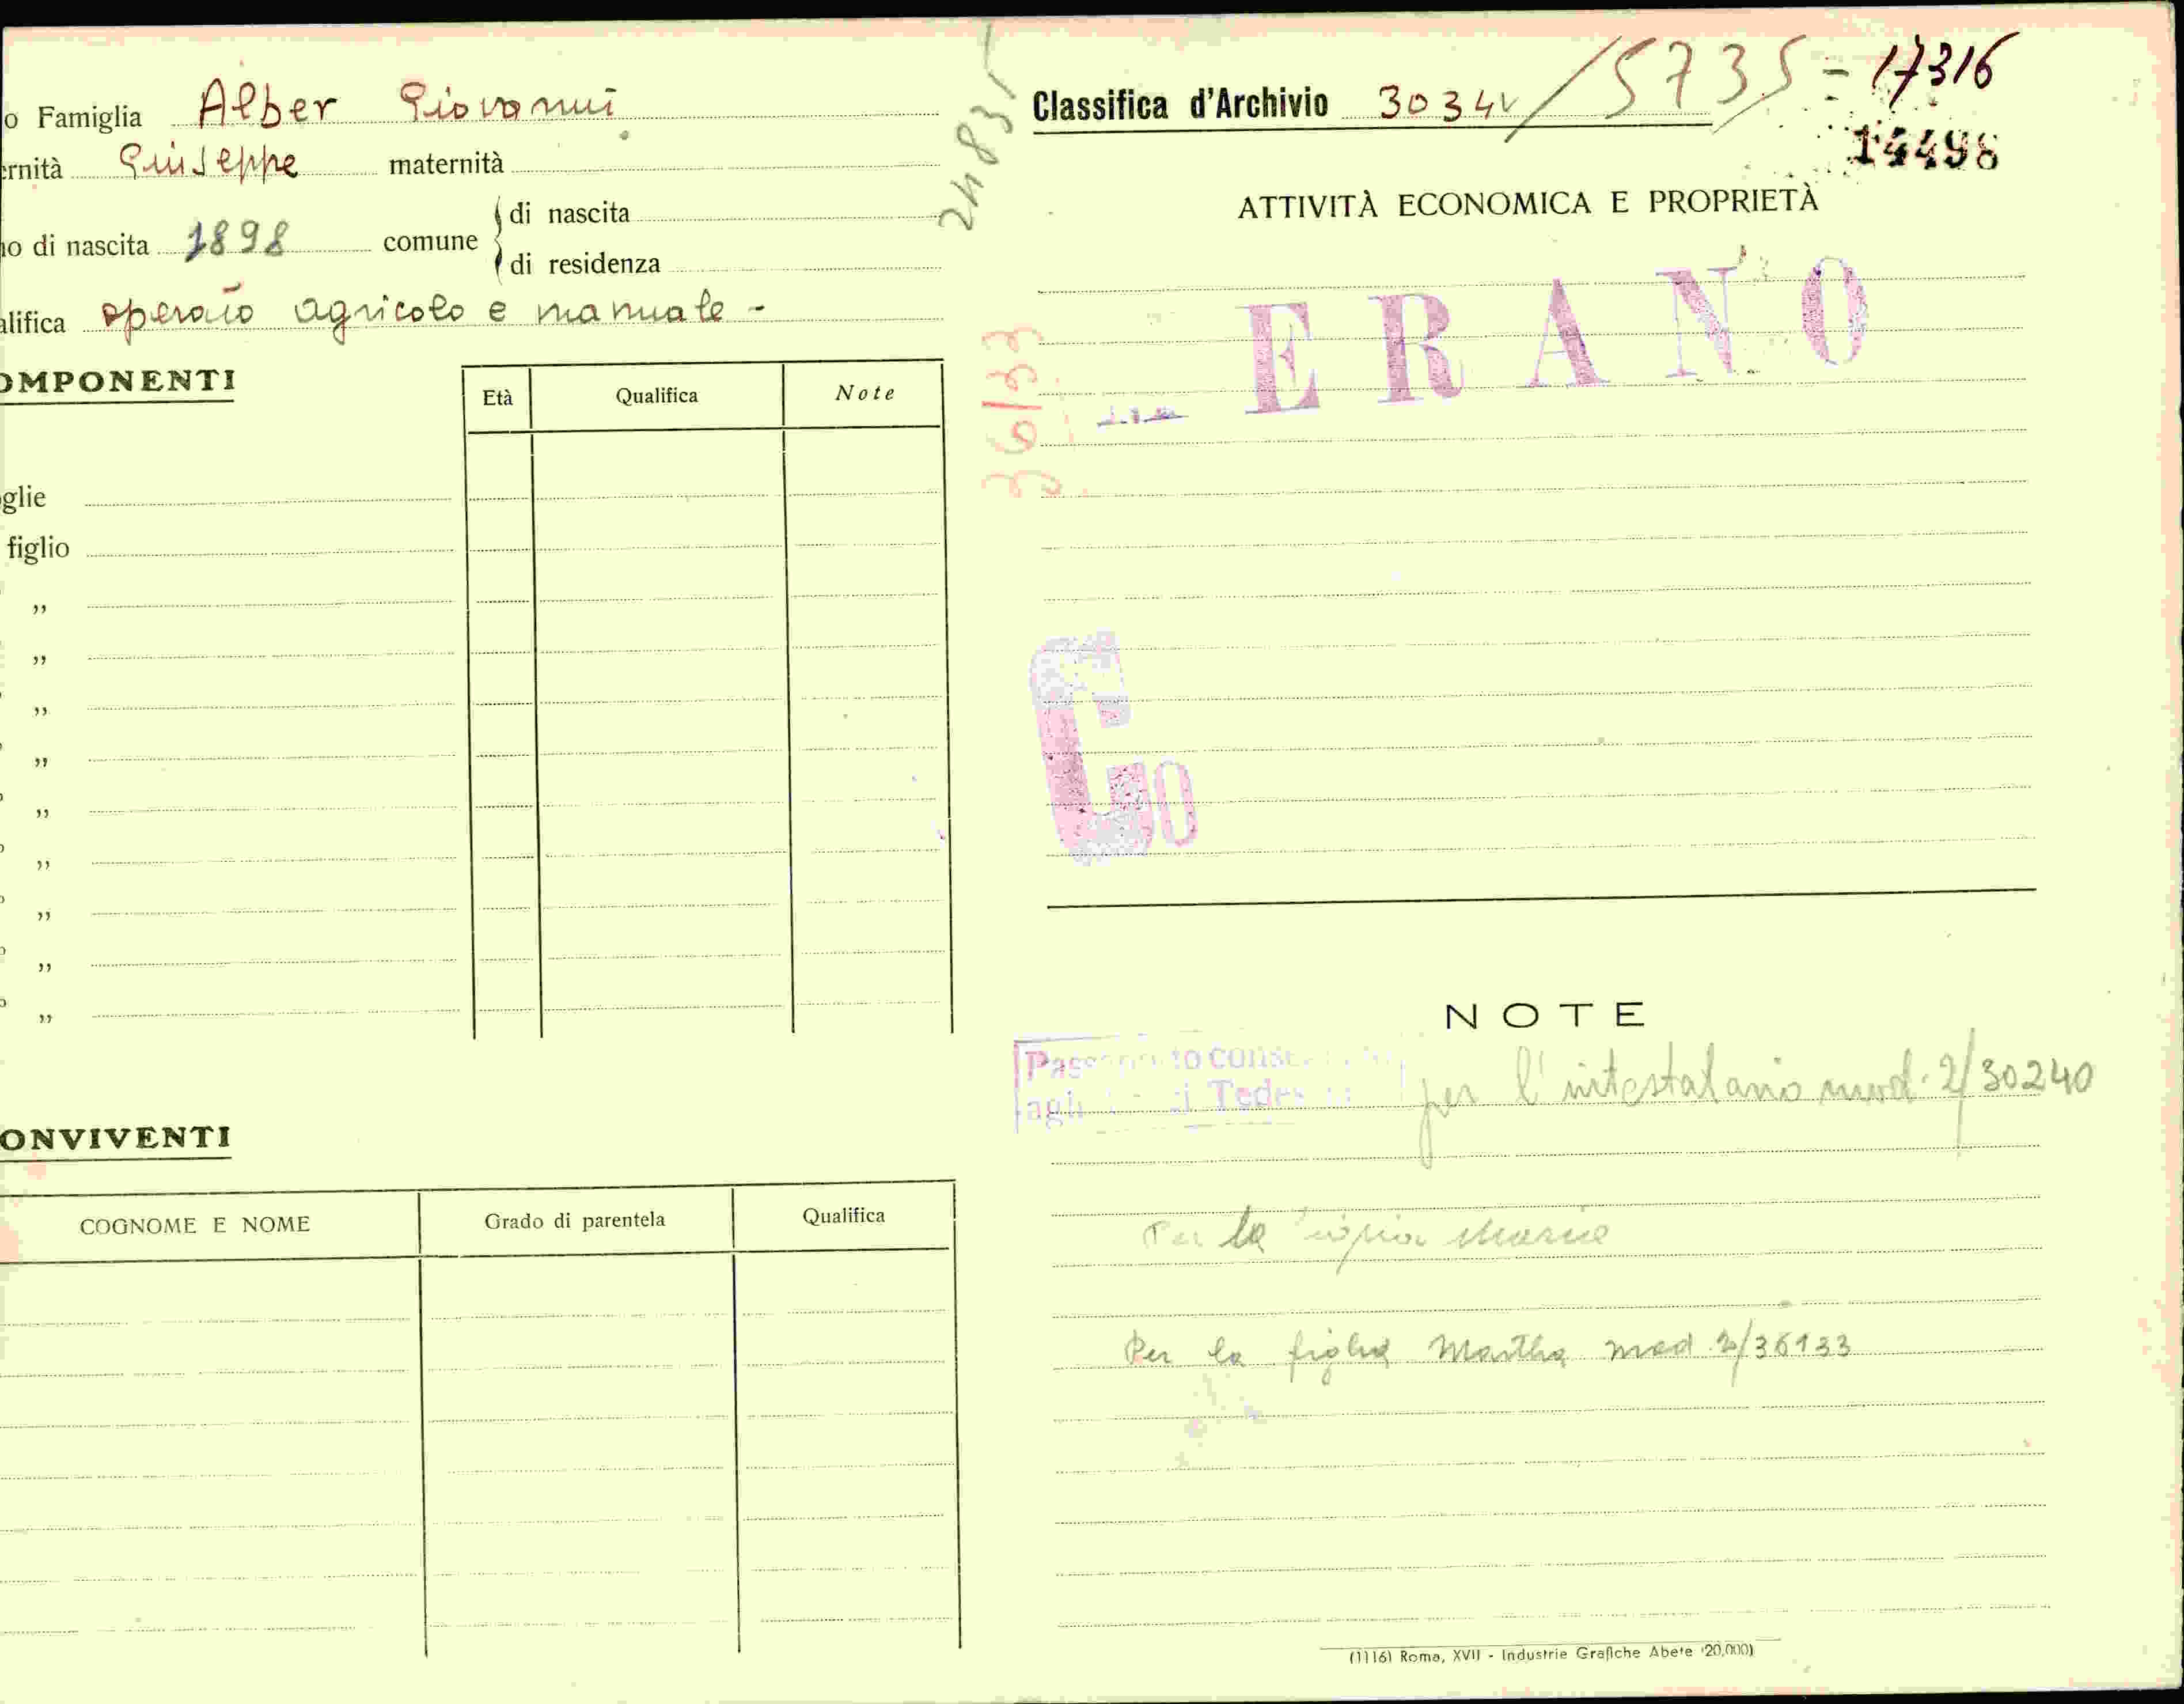 o Famiglia Alber Giovanni
ernità Giuseppe maternità
no di nascita 1898 comune di nascita
di residenza
alifica operaio agricolo e manuale -
OMPONENTI
Età Qualifica Note
oglie
figlio
”
”
”
”
”
”
”
”
”
ONVIVENTI
COGNOME E NOME Grado di parentela Qualifica
24831
36133
Classifica d'Archivio 3034 / 5735 - 17316
14498
ATTIVITÀ ECONOMICA E PROPRIETÀ
ERANO
G
NOTE
per l'intestatario mod. 2/30240
Per la Maria
Per la figlia Martha mod 2/36133
(1116) Roma, XVII - Industrie Grafiche Abete (20,000)